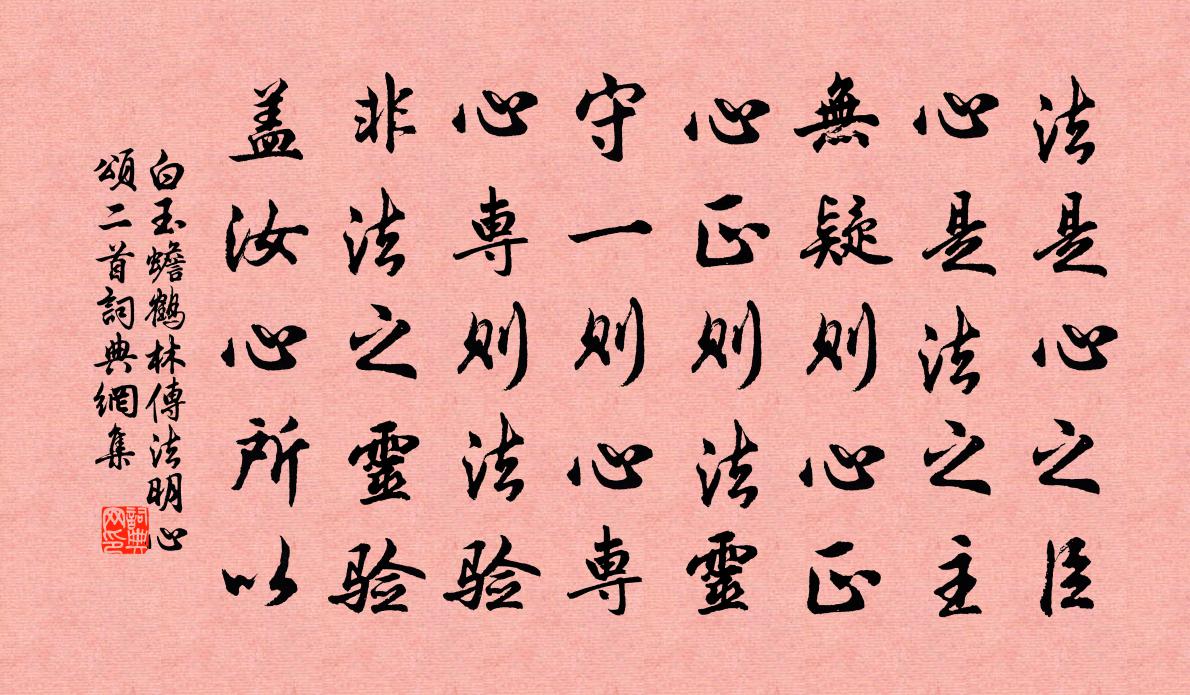 法是心之臣
心是法之主
無疑則心正
心正則法靈
守一則心専
心専則法验
非法之靈验
盖汝心所以
白玉蟾鶴林傳法明心
頌二首詞典網集
詞典網印